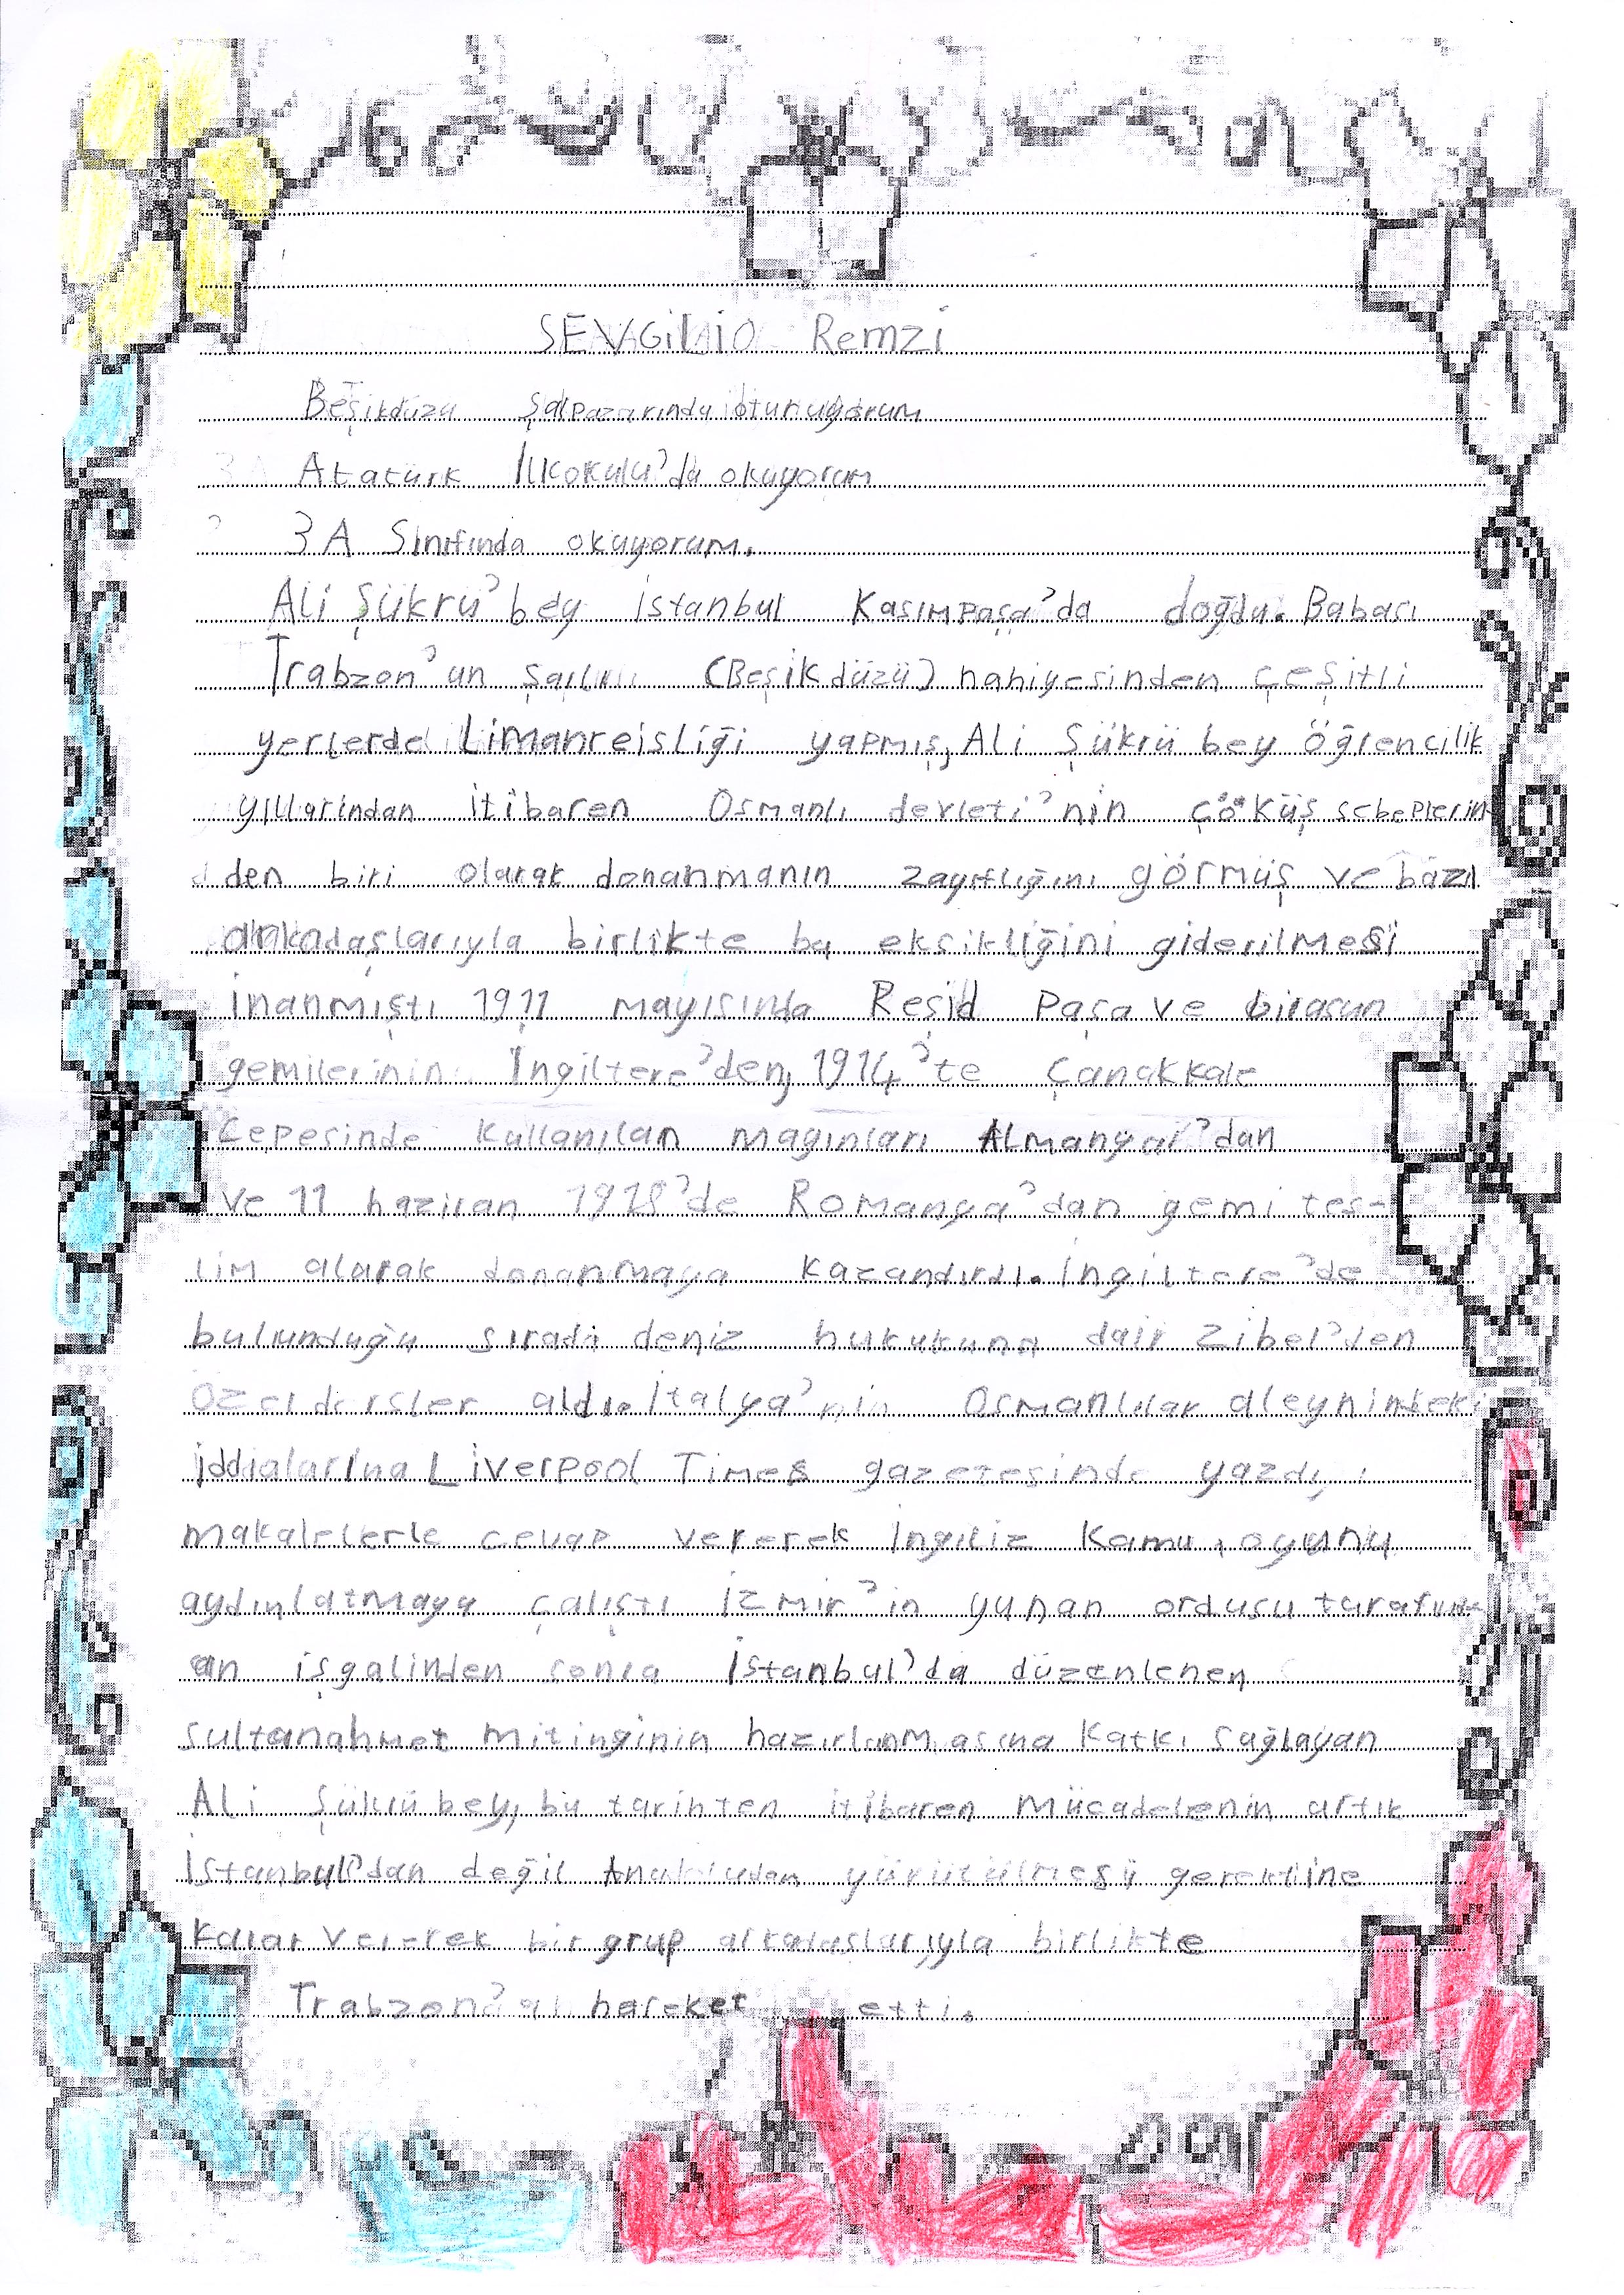 SEVGiLiO Remzi
Beşikdüzü şalpazarında oturuyorum
Atatürk İlkokulu'da okuyorum
3A Sınıfında okuyorum.
Ali Şükrü' bey istanbul Kasımpaşa'da doğdu. Babası
Trabzon'un (Beşikdüzü) nahiyesinden çeşitli
yerlerde Limanreisliği yapmış, Ali Şükrü bey öğrencilik
yıllarindan itibaren Osmanlı devleti'nin çöküş sebeplerin-
den biri olarak donanmanın zayıflığını görmüş ve bazı
arkadaşlarıyla birlikte bu eksikliğini giderilmesi
inanmıştı 1911 mayısında Reşid Paşa ve
gemilerinin İngiltere'den, 1914'te Çanakkale
Cepesinde kullanılan mayınları Almanyai'dan
ve 11 haziran 1918'de Romanya'dan gemi tes-
lim alarak donanmaya kazandırdı. ingiltere'de
bulunduğu sırada deniz hukukuna dair Zibel'den
özel dersler aldı. italya'nin Osmanlılar aleynindeki
iddialarına Liverpool Times gazetesinde
makalelerle cevap vererek ingiliz Kamu, oyunu
aydınlatmaya çalıştı izmir'in yunan ordusu
an işgalinden sonra istanbul'da düzenlenen
sultanahmet mitinginin hazırlanmasına katkı sağlayan
Ali Şükrü bey, bu tarihten itibaren mücadelenin artık
istanbul'dan değil yürütülmesi gerektiine
karar vererek bir grup arkadaşlarıyla birlikte
hareket etti.